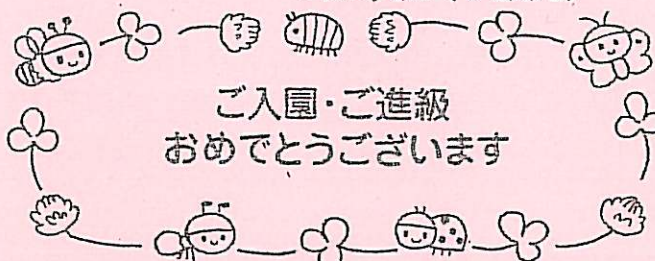 ご入園・ご進級
おめでとうございます